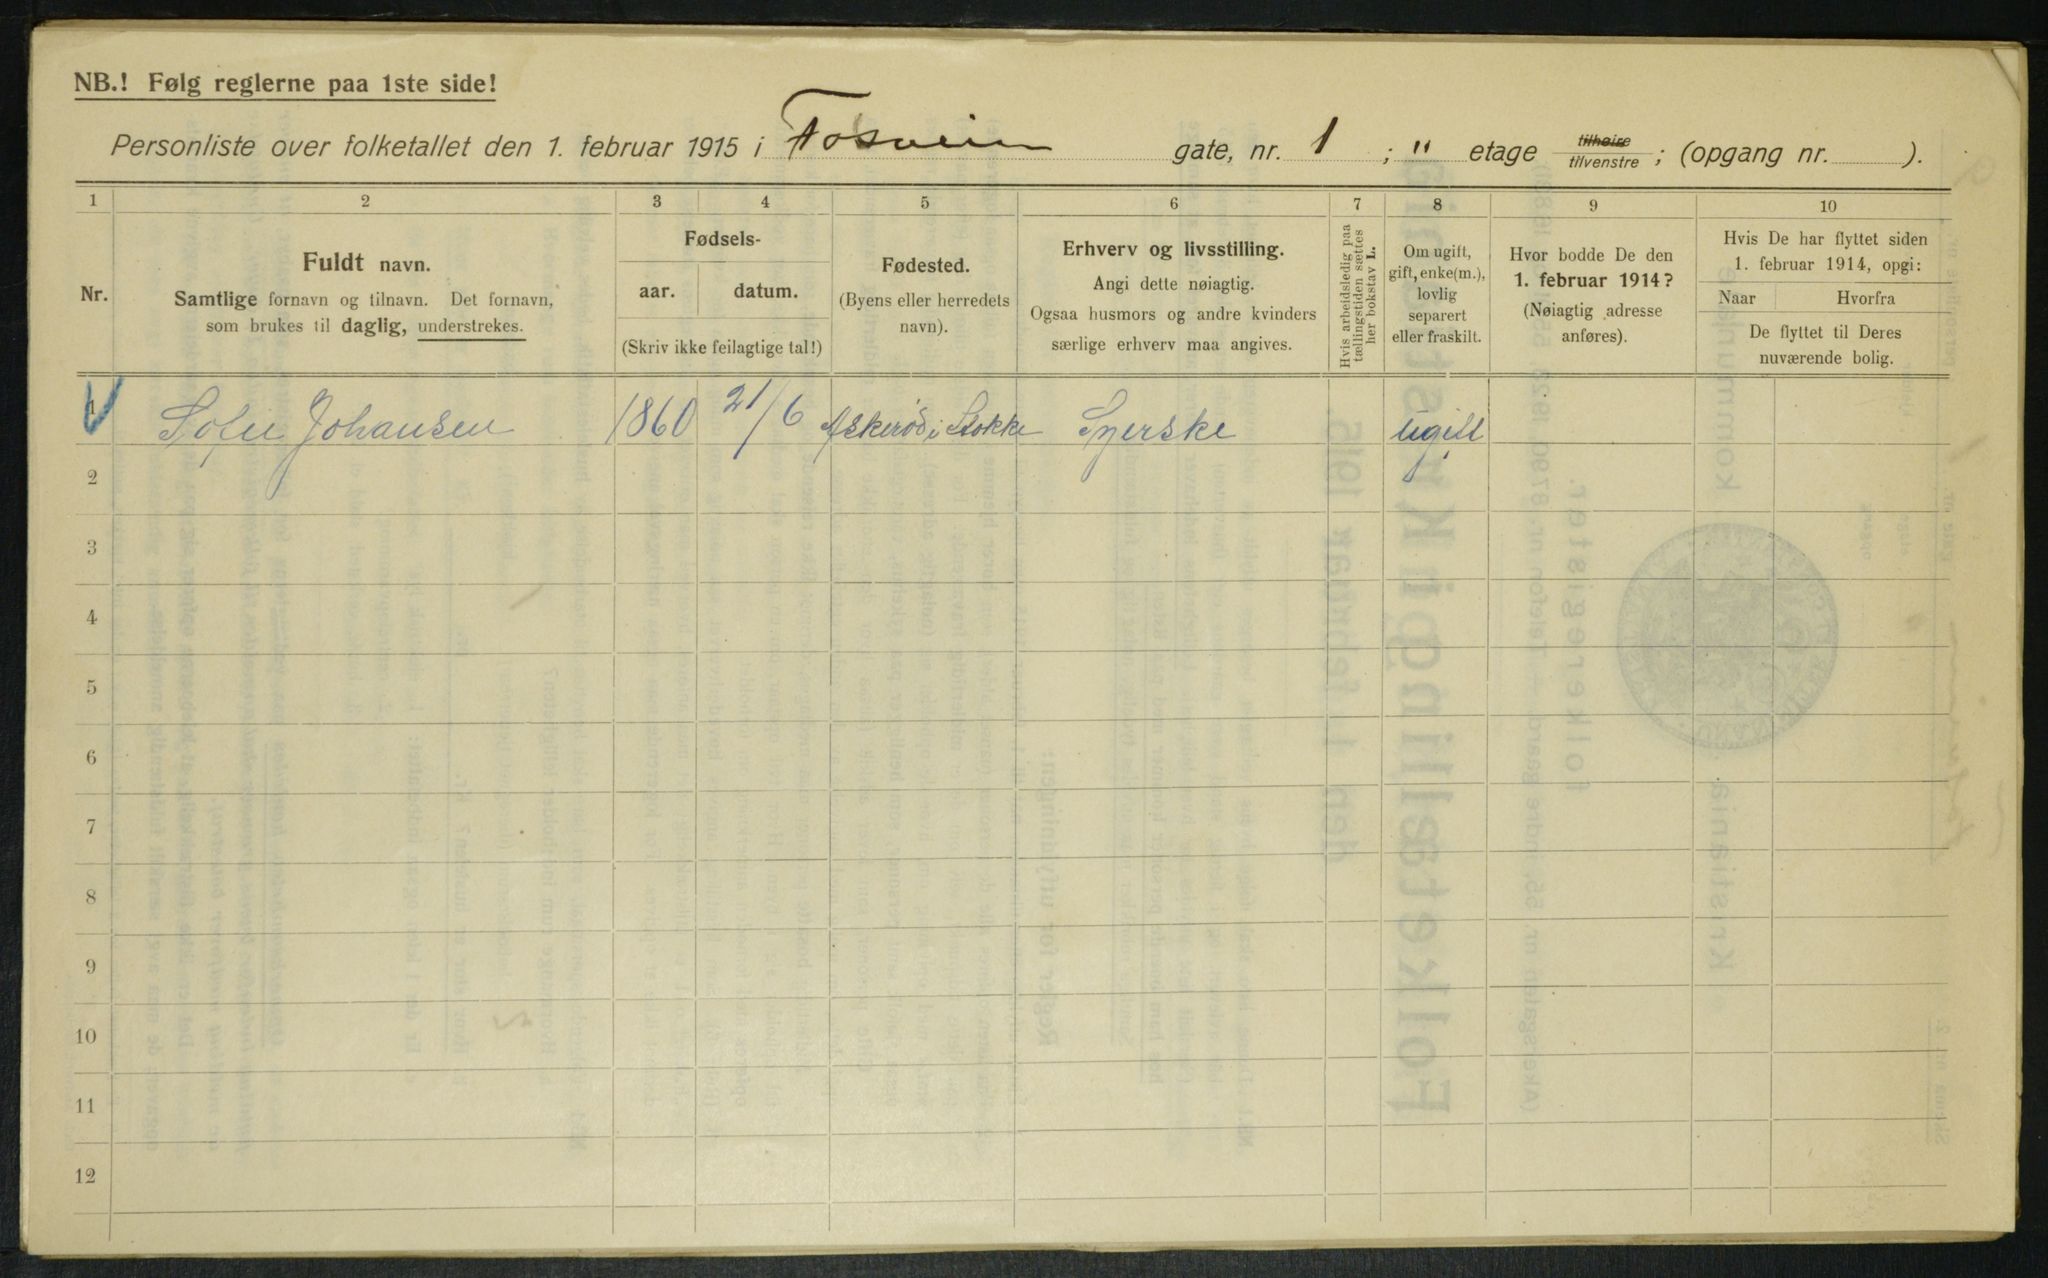 NB.! Følg reglerne paa 1ste side!
Personliste over folketallet den 1. februar 1915 i Fosveien gate, nr. 1 ; " etage tilhøire / tilvenstre ; (opgang nr. ).
1 2 3 4 5 6 7 8 9 10
Nr.
Fuldt navn.
Samtlige fornavn og tilnavn. Det fornavn,
som brukes til daglig, understrekes.
Fødsels-
aar. datum.
(Skriv ikke feilagtige tal!)
Fødested.
(Byens eller herredets
navn).
Erhverv og livsstilling.
Angi dette nøiagtig.
Ogsaa husmors og andre kvinders
særlige erhverv maa angives.
Hvis arbeidsledig paa
tællingstiden sættes
her bokstav L.
Om ugift,
gift, enke(m.),
lovlig
separert
eller fraskilt.
Hvor bodde De den
1. februar 1914?
(Nøiagtig adresse
anføres).
Hvis De har flyttet siden
1. februar 1914, opgi:
Naar Hvorfra
De flyttet til Deres
nuværende bolig.
1 Sofie Johansen 1860 21/6 Askerød i Stokke Syerske ugift
2
3
4
5
6
7
8
9
10
11
12